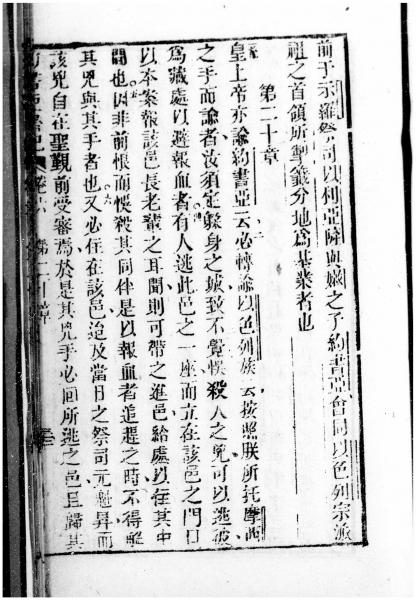 前于示羅祭司以利亞薩與嫩之子約書亞會同以色列宗派
祖之首領所掣籤分地爲基業者也
第二十章
皇上帝亦諭約書亞云必轉諭以色列族云按照朕所托摩西
之手而諭者汝須定躲身之城致不覺悞殺人之兇可以逃彼
爲藏處以避報血者有人逃此邑之一座而立在該邑之門口
以本案報該邑長老輩之耳聞則可帶之進邑給處以在其中
間也因非前恨而悞殺其同伴是以報血者追趕之時不得解
其兇與其手者也又必住在該邑迨及當日之祭司元魁昇而
該兇自在聖覲前受審焉於是其兇手必回所逃之邑且歸其
卷六 第二十章